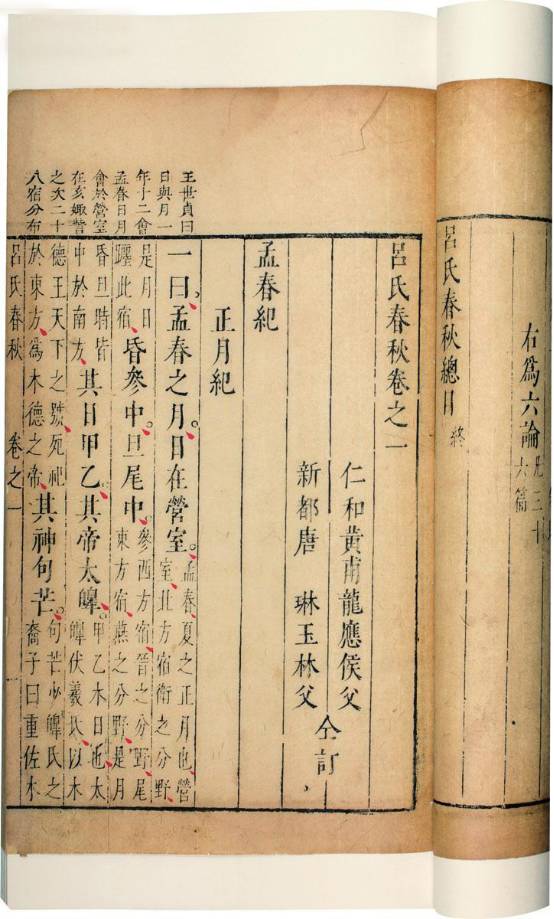 右爲六論 凡三十
六篇
呂氏春秋總目 終
呂氏春秋卷之一
仁和黃甫龍應侯父
新都唐 琳玉林父
仝訂
孟春紀
正月紀
王世貞曰
日與月一
年十二會
孟春日月
會於營室
在亥娵訾
之次二十
八宿分布
一曰、孟春之月、日在營室。孟春夏之正月也、營
室北方宿衛之分野
是月日
躔此宿、昏參中。旦尾中。參西方宿晉之分野、尾
東方宿燕之分野、是月
昏旦時皆
中於南方、其日甲乙。其帝太皡。甲乙木日也、太
皡伏羲氏以木
德王天下之號、死祀
於東方、爲木德之帝、其神句芒。句芒少皡氏之
裔子曰重佐木
呂氏春秋 卷之一 一